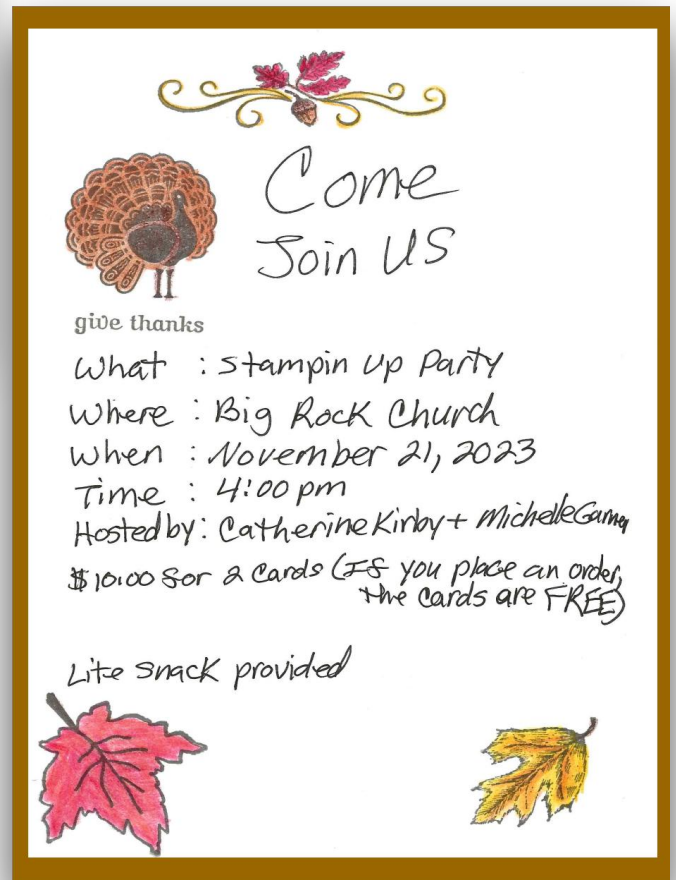 Come
Join US
give thanks
What : Stampin Up Party
Where : Big Rock Church
When : November 21, 2023
Time : 4:00 pm
Hosted by: Catherine Kirby + Michelle
$10.00 for 2 Cards (If you place an order,
the cards are FREE)
Lite snack provided